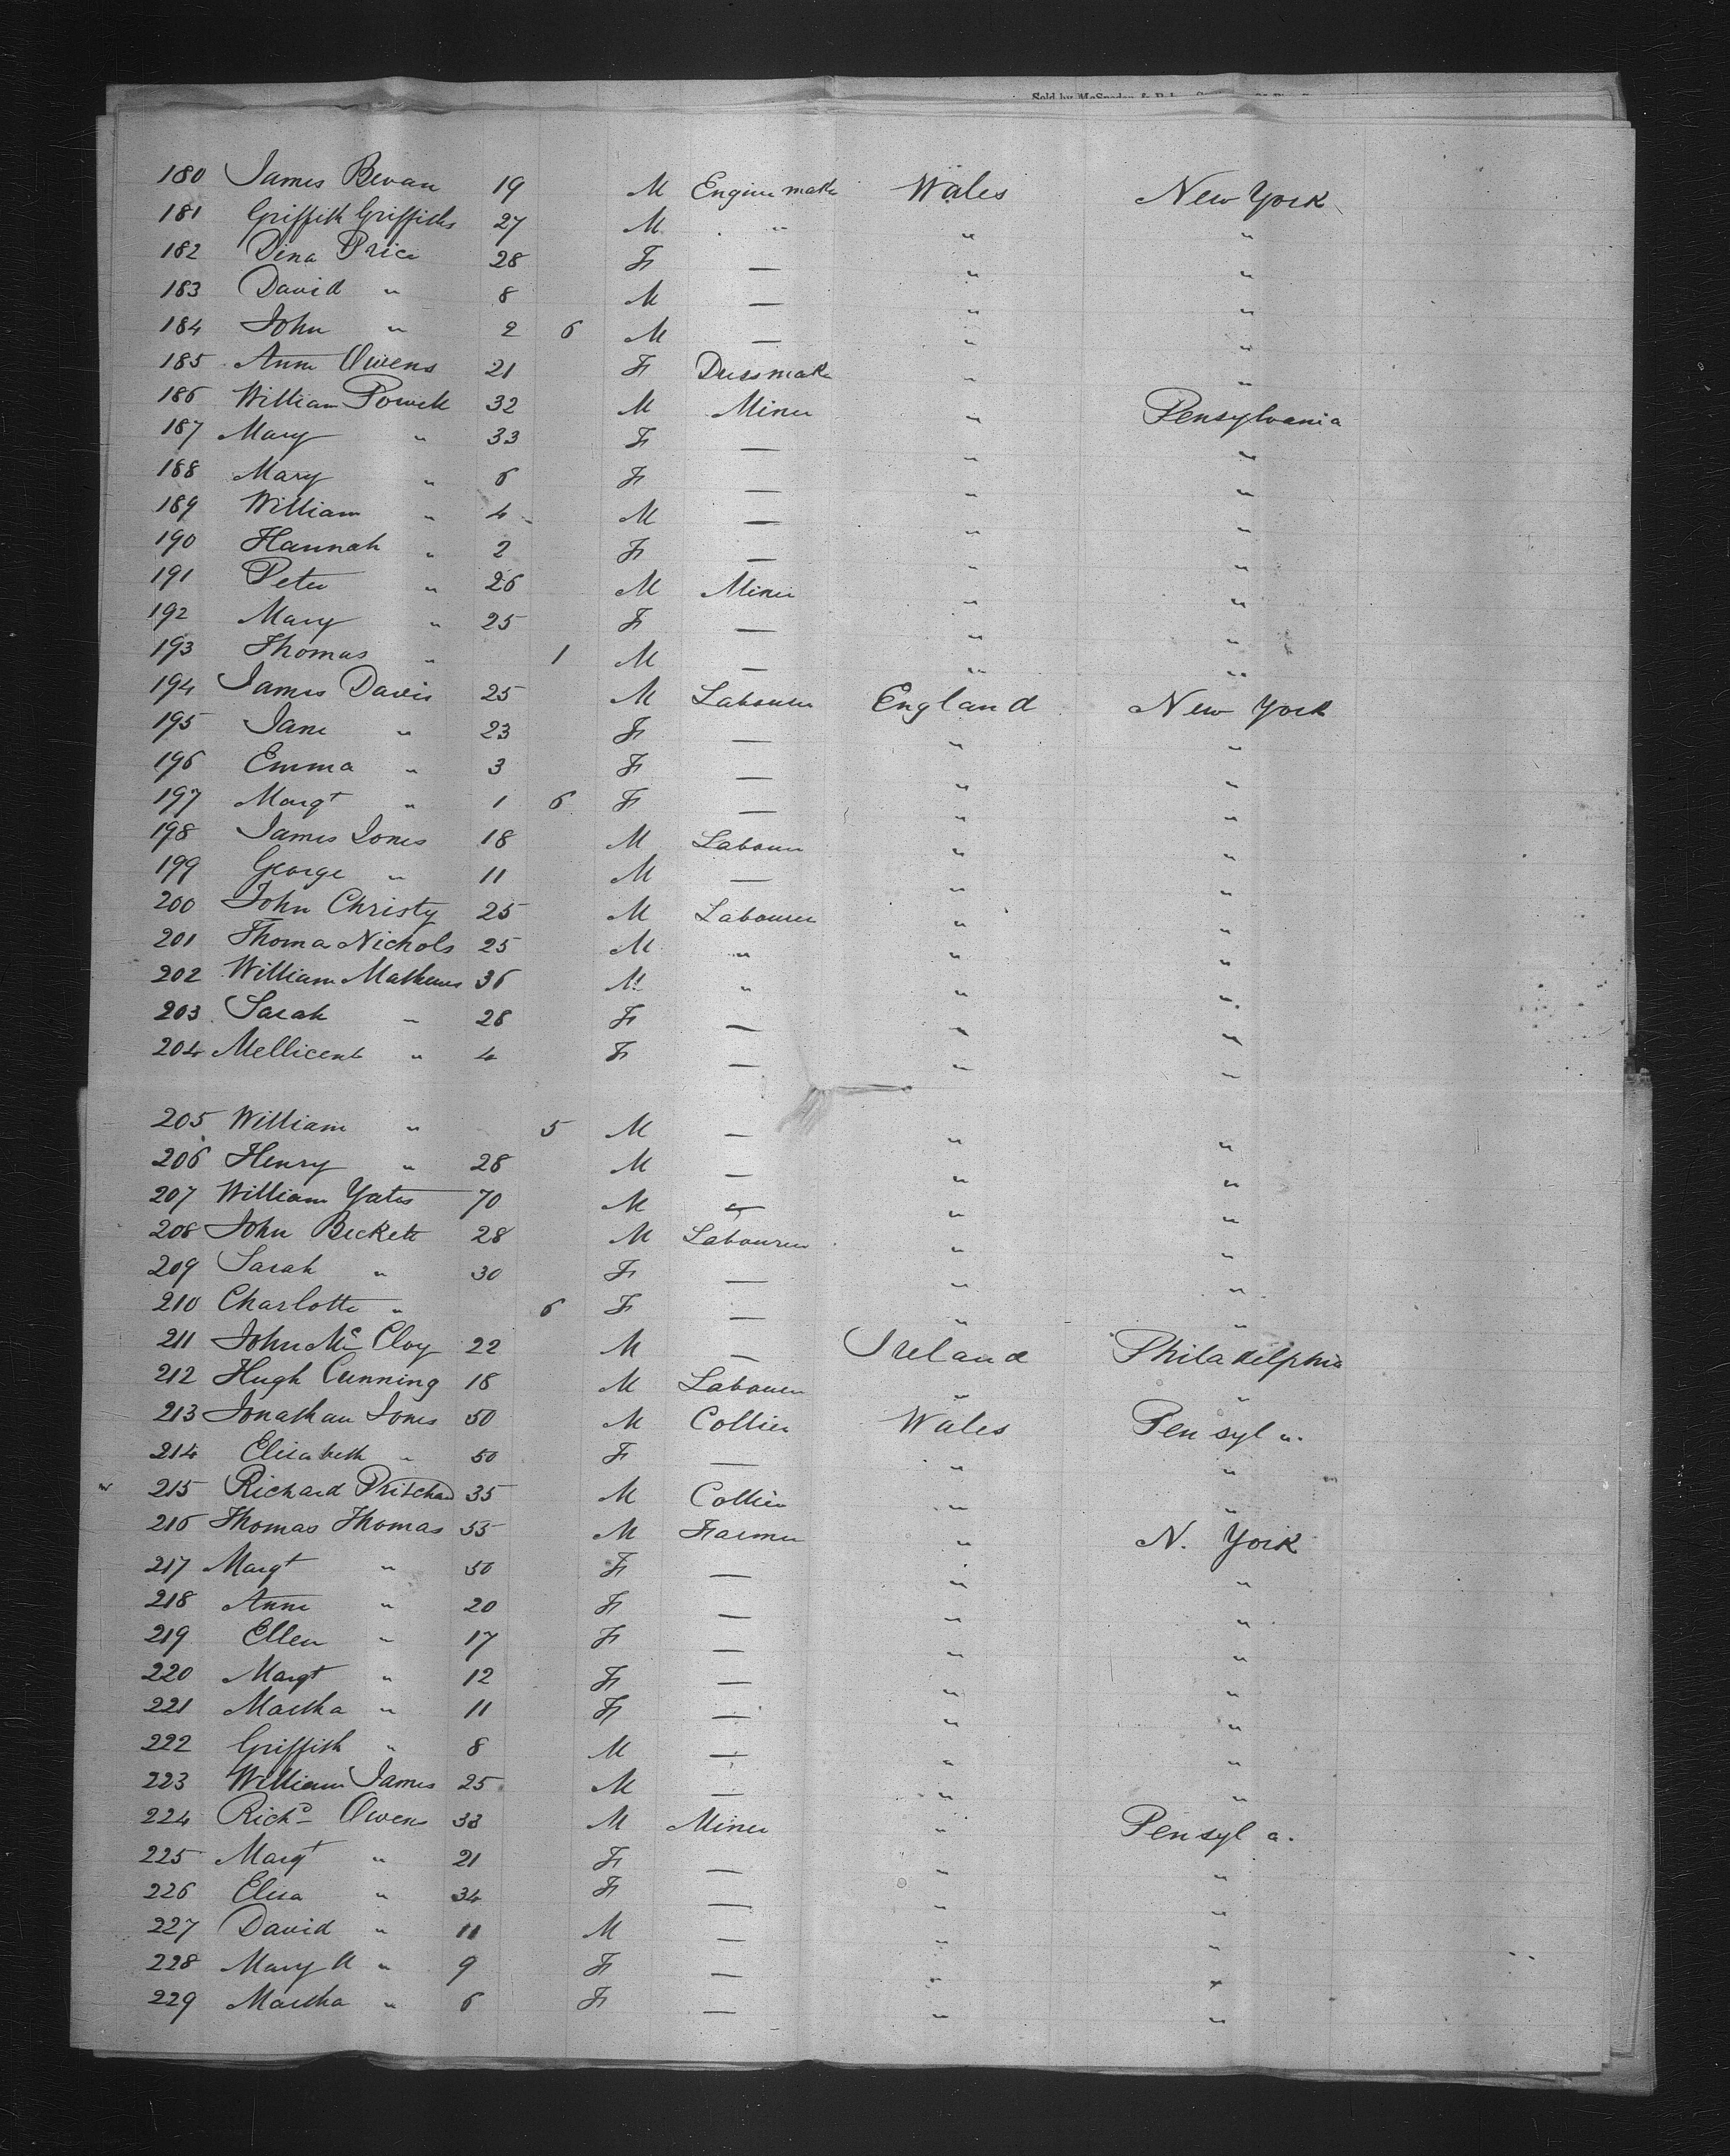 Sold by McSpedon & Baker
180 James Bevan 19 M Engine maker Wales New York
181 Griffith Griffiths 27 M " " "
182 Dina Price 28 F — " "
183 David " 8 M — " "
184 John " 2 6 M — " "
185 Ann Owens 21 F Dressmaker " "
186 William Powell 32 M Miner " Pensylvania
187 Mary " 33 F — " "
188 Mary " 6 F — " "
189 William " 4 M — " "
190 Hannah " 2 F — " "
191 Peter " 26 M Miner " "
192 Mary " 25 F — " "
193 Thomas " 1 M — " "
194 James Davis 25 M Labourer England New York
195 Jane " 23 F — " "
196 Emma " 3 F — " "
197 Margt " 1 6 F — " "
198 James Jones 18 M Labourer " "
199 George " 11 M — " "
200 John Christy 25 M Labourer " "
201 Thomas Nichols 25 M " " "
202 William Mathews 36 M " " "
203 Sarah " 28 F — " "
204 Mellicent " 4 F — " "
205 William " 5 M — " "
206 Henry " 28 M — " "
207 William Yates 70 M — " "
208 John Beckett 28 M Labourer " "
209 Sarah " 30 F — " "
210 Charlotte " 6 F — " "
211 John Mc Cloy 22 M — Ireland Philadelphia
212 Hugh Cunning 18 M Labourer " "
213 Jonathan Jones 50 M Collier Wales Pensyl a.
214 Elisabeth " 50 F — " "
215 Richard Pritchard 35 M Collier " "
216 Thomas Thomas 55 M Farmer " N. York
217 Margt " 50 F — " "
218 Anne " 20 F — " "
219 Ellen " 17 F — " "
220 Margt " 12 F — " "
221 Martha " 11 F — " "
222 Griffith " 8 M — " "
223 William James 25 M — " "
224 Richd Owens 33 M Miner " Pensyl a.
225 Margt " 21 F — " "
226 Elisa " 34 F — " "
227 David " 11 M — " "
228 Mary A " 9 F — " "
229 Martha " 6 F — " "